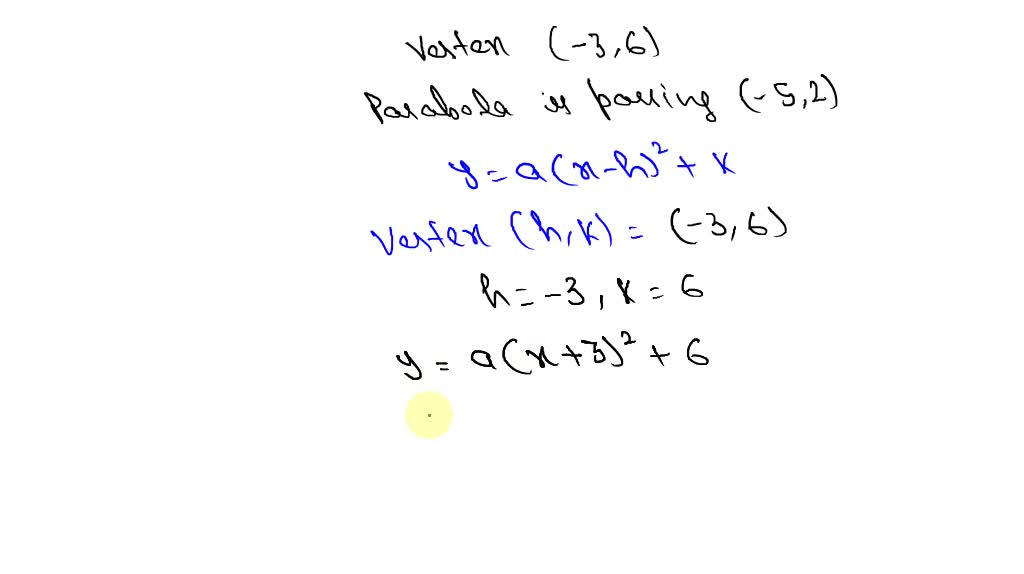 Vertex (-3,6)
Parabola is passing (-5,2)
y = a(x-h)² + k
Vertex (h,k) = (-3,6)
h = -3, k = 6
y = a(x+3)² + 6